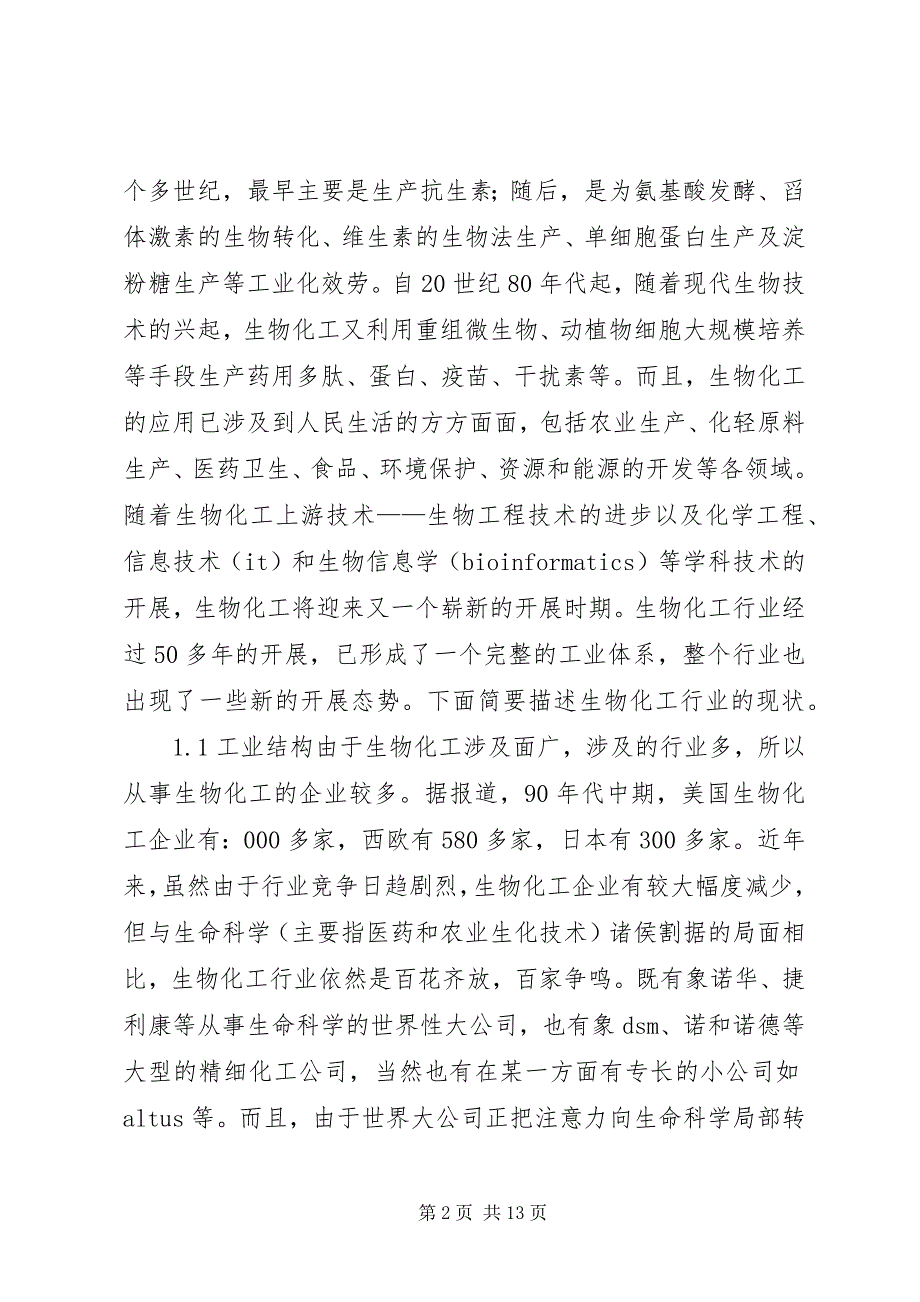 个多世纪，最早主要是生产抗生素；随后，是为氨基酸发酵、舀
体激素的生物转化、维生素的生物法生产、单细胞蛋白生产及淀
粉糖生产等工业化效劳。自 20 世纪 80 年代起，随着现代生物技
术的兴起，生物化工又利用重组微生物、动植物细胞大规模培养
等手段生产药用多肽、蛋白、疫苗、干扰素等。而且，生物化工
的应用已涉及到人民生活的方方面面，包括农业生产、化轻原料
生产、医药卫生、食品、环境保护、资源和能源的开发等各领域。
随着生物化工上游技术——生物工程技术的进步以及化学工程、
信息技术（it）和生物信息学（bioinformatics）等学科技术的
开展，生物化工将迎来又一个崭新的开展时期。生物化工行业经
过 50 多年的开展，已形成了一个完整的工业体系，整个行业也
出现了一些新的开展态势。下面简要描述生物化工行业的现状。
1.1 工业结构由于生物化工涉及面广，涉及的行业多，所以
从事生物化工的企业较多。据报道，90 年代中期，美国生物化
工企业有：000 多家，西欧有 580 多家，日本有 300 多家。近年
来，虽然由于行业竞争日趋剧烈，生物化工企业有较大幅度减少，
但与生命科学（主要指医药和农业生化技术）诸侯割据的局面相
比，生物化工行业依然是百花齐放，百家争鸣。既有象诺华、捷
利康等从事生命科学的世界性大公司，也有象 dsm、诺和诺德等
大型的精细化工公司，当然也有在某一方面有专长的小公司如
altus 等。而且，由于世界大公司正把注意力向生命科学局部转
第 2 页 共 13 页